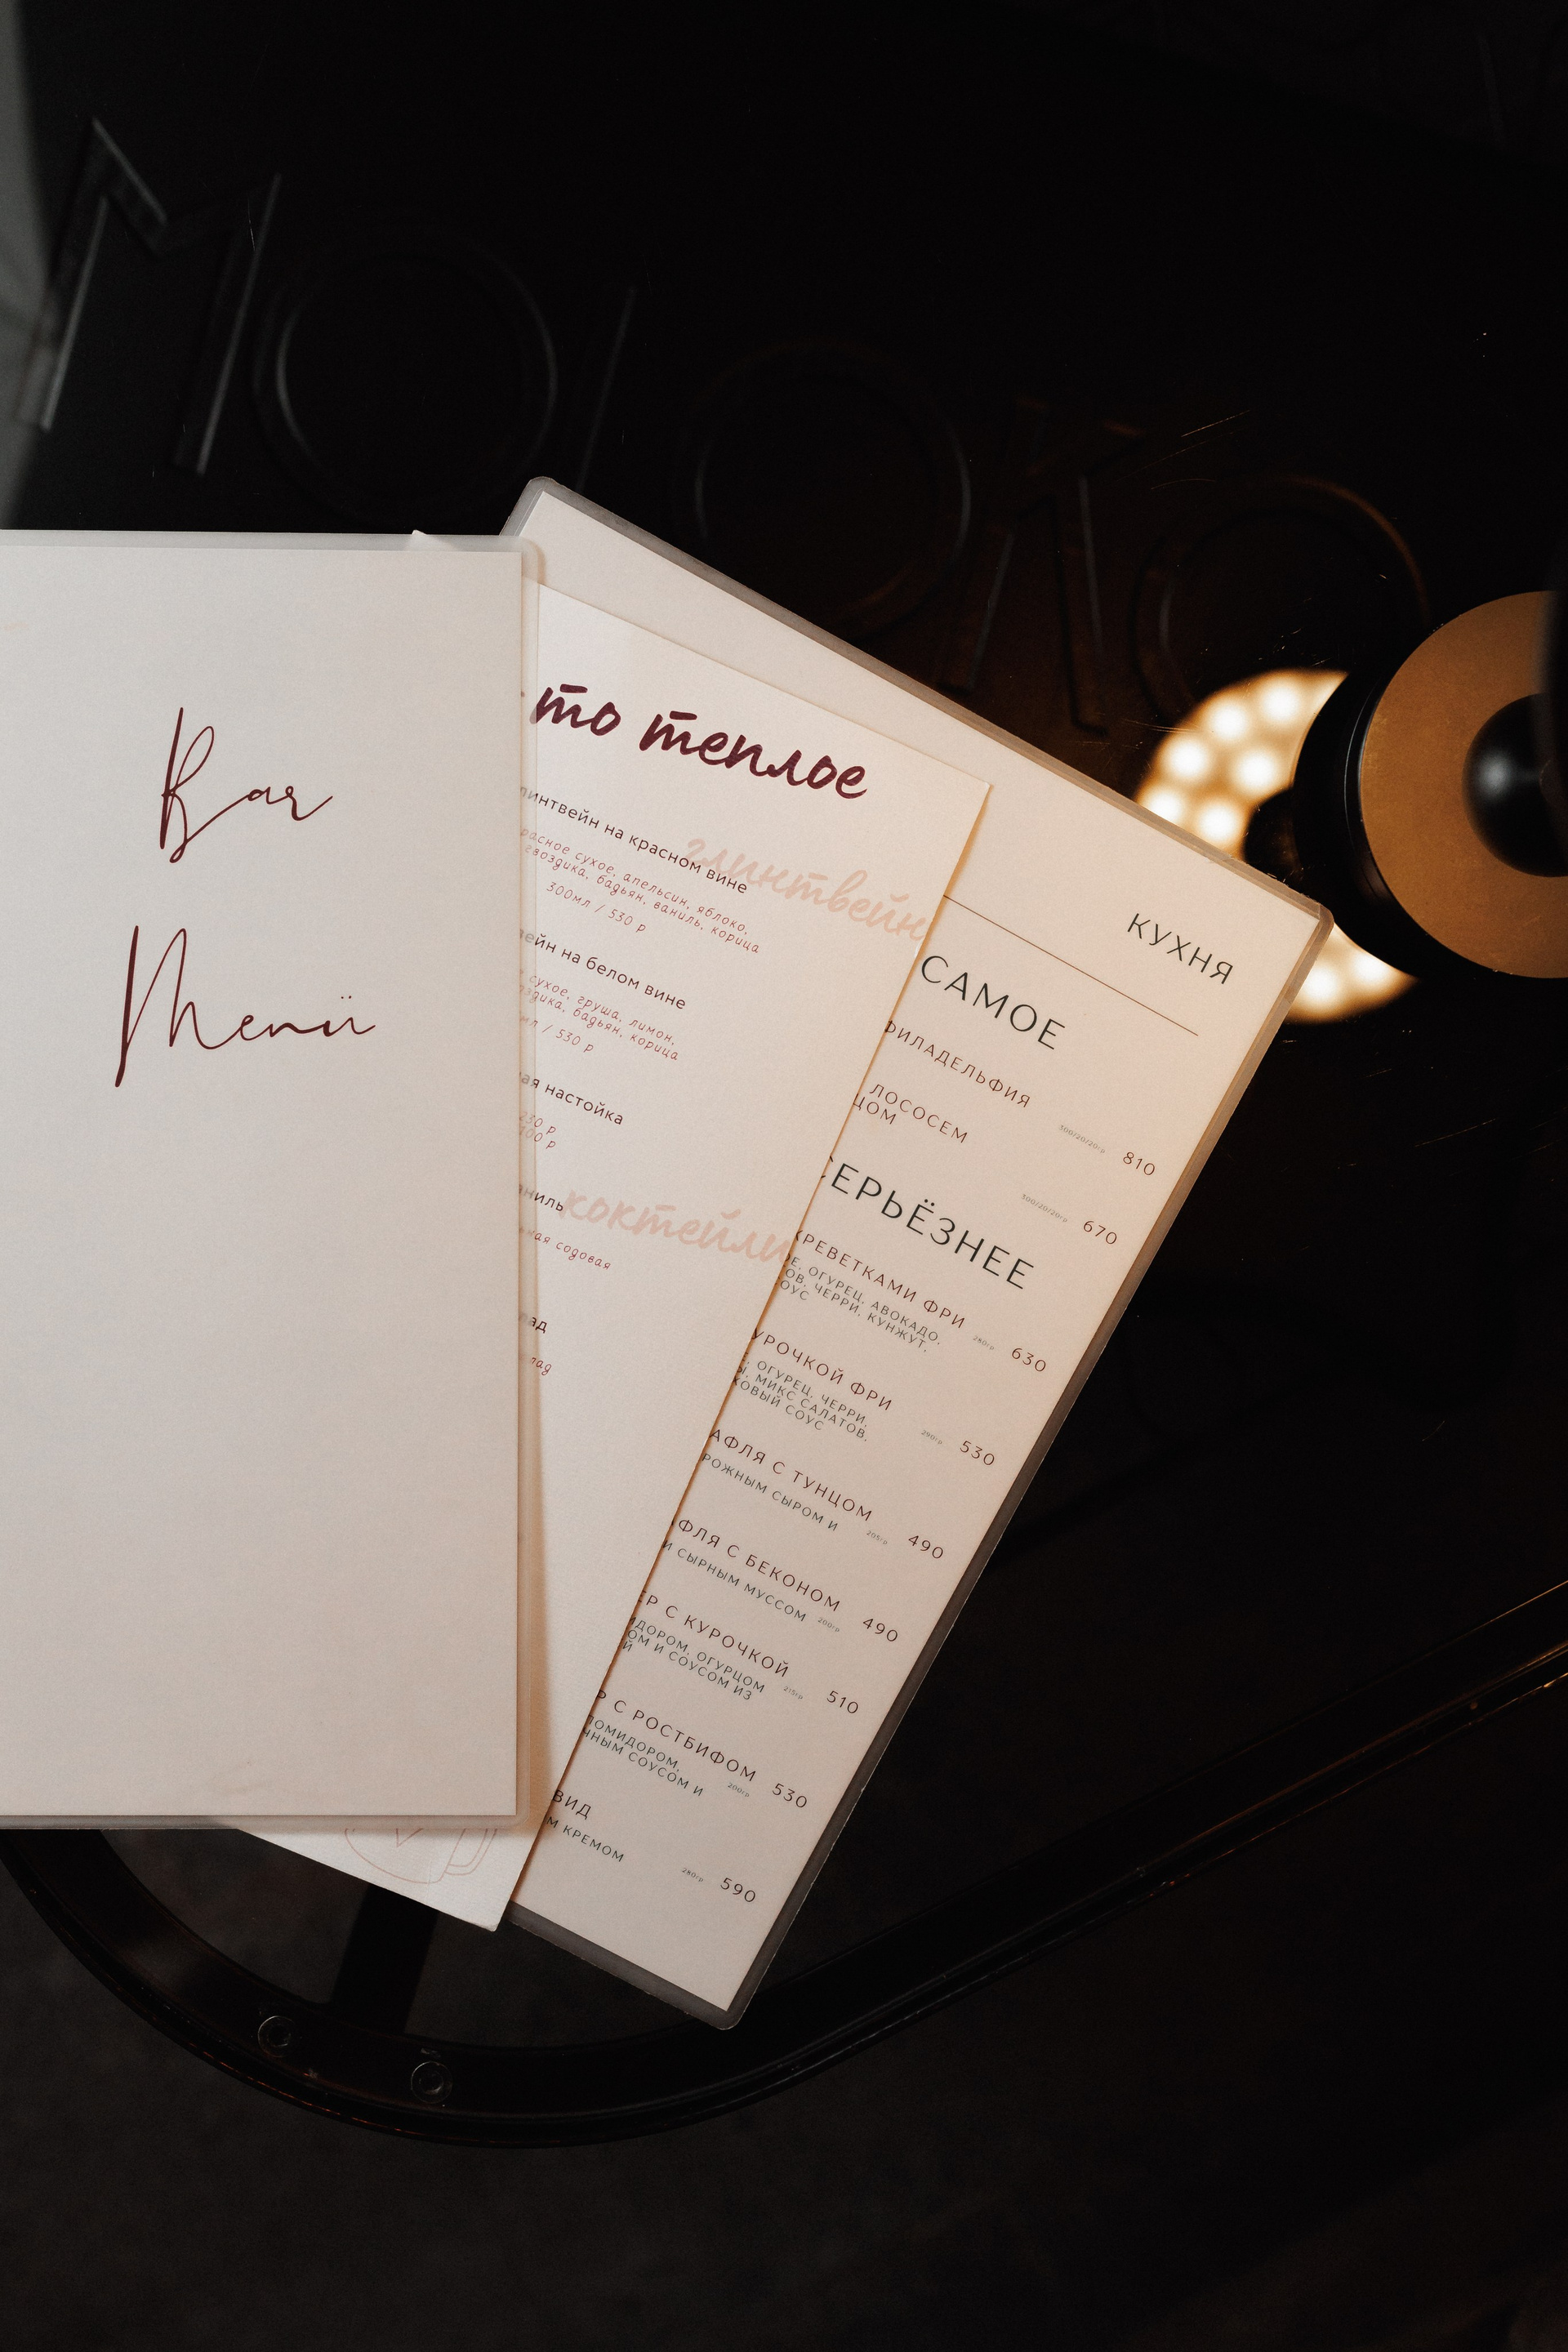 МОЛОКО
Bar
Menü
то теплое
глинтвейн
на красном вине
сухое, апельсин, яблоко,
гвоздика, бадьян, ваниль, корица
300мл / 530 р
на белом вине
сухое, груша, лимон,
бадьян, корица
/ 530 р
настойка
230 р
100 р
коктейли
содовая
КУХНЯ
САМОЕ
ФИЛАДЕЛЬФИЯ
100/20/20гр 810
ЛОСОСЕМ
100/20/20гр 670
СЕРЬЁЗНЕЕ
КРЕВЕТКАМИ ФРИ
ОГУРЕЦ, АВОКАДО,
ЧЕРРИ, КУНЖУТ,
280гр 630
КУРОЧКОЙ ФРИ
ОГУРЕЦ, ЧЕРРИ,
МИКС САЛАТОВ,
СОУС
290гр 530
АФЛЯ С ТУНЦОМ
РОЖНЫМ СЫРОМ И
205гр 490
ФЛЯ С БЕКОНОМ
И СЫРНЫМ МУССОМ
200гр 490
ЕР С КУРОЧКОЙ
ИДОРОМ, ОГУРЦОМ
ОМ И СОУСОМ ИЗ
215гр 510
Р С РОСТБИФОМ
ПОМИДОРОМ,
ЧНЫМ СОУСОМ И
200гр 530
ВИД
М КРЕМОМ
280гр 590